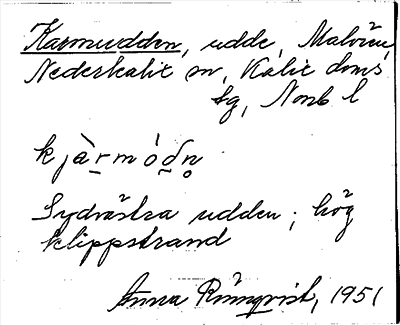 Karmudden, udde, Malören,
Nederkalix sn, Kalix doms
sg, Norrb l
kjàrmódn̥
Sydvästra udden; hög
klippstrand
Anna Rönnqvist, 1951